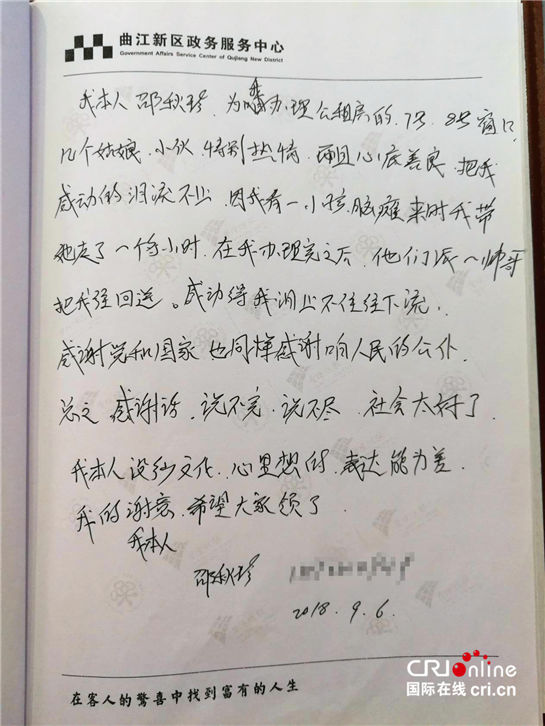 曲江新区政务服务中心
Government Affairs Service Center of Qujiang New District
我本人邵秋珍,为我办理公租房的,7号,8号窗口,
几个姑娘,小伙,特别热情,而且心底善良,把我
感动的泪流不止,因我有一小孩脑瘫来时我带
她走了一个多小时,在我办理完之后,他们派一帅哥
把我往回送。感动得我泪止不住往下流,
感谢党和国家也同样感谢咱人民的公仆,
总之感谢话,说不完,说不尽,社会太好了,
我本人没多文化,心里想的,表达能力差,
我的谢意,希望大家领了,
我本人
邵秋珍
2018.9.6.
在客人的惊喜中找到富有的人生
CRIonline
国际在线 cri.cn